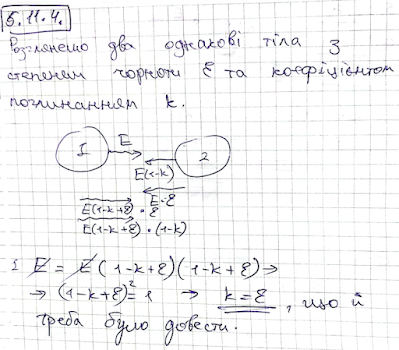 5.11.4.
Розглянемо два однакові тіла з
степенем чорноти ε та коефіцієнтом
поглинанням k.
1 E 2
E(1-k)
E·ε
E(1-k+ε)·ε
E(1-k+ε)·(1-k)
1 E = E(1-k+ε)(1-k+ε) →
→ (1-k+ε)²=1 → k=ε, що й
треба було довести.